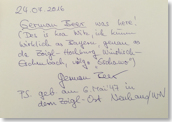 29.07.2016
German Beer was here!
(Das is kea Witz, ich kimm
wirklich as Bayern, genau as
da Zoigl-Hochburg Windisch-
Eschenbach,
German Beer
P.S. geb. am 6. Mai 47 in
dem Zoigl-Ort Neuhaus/WN